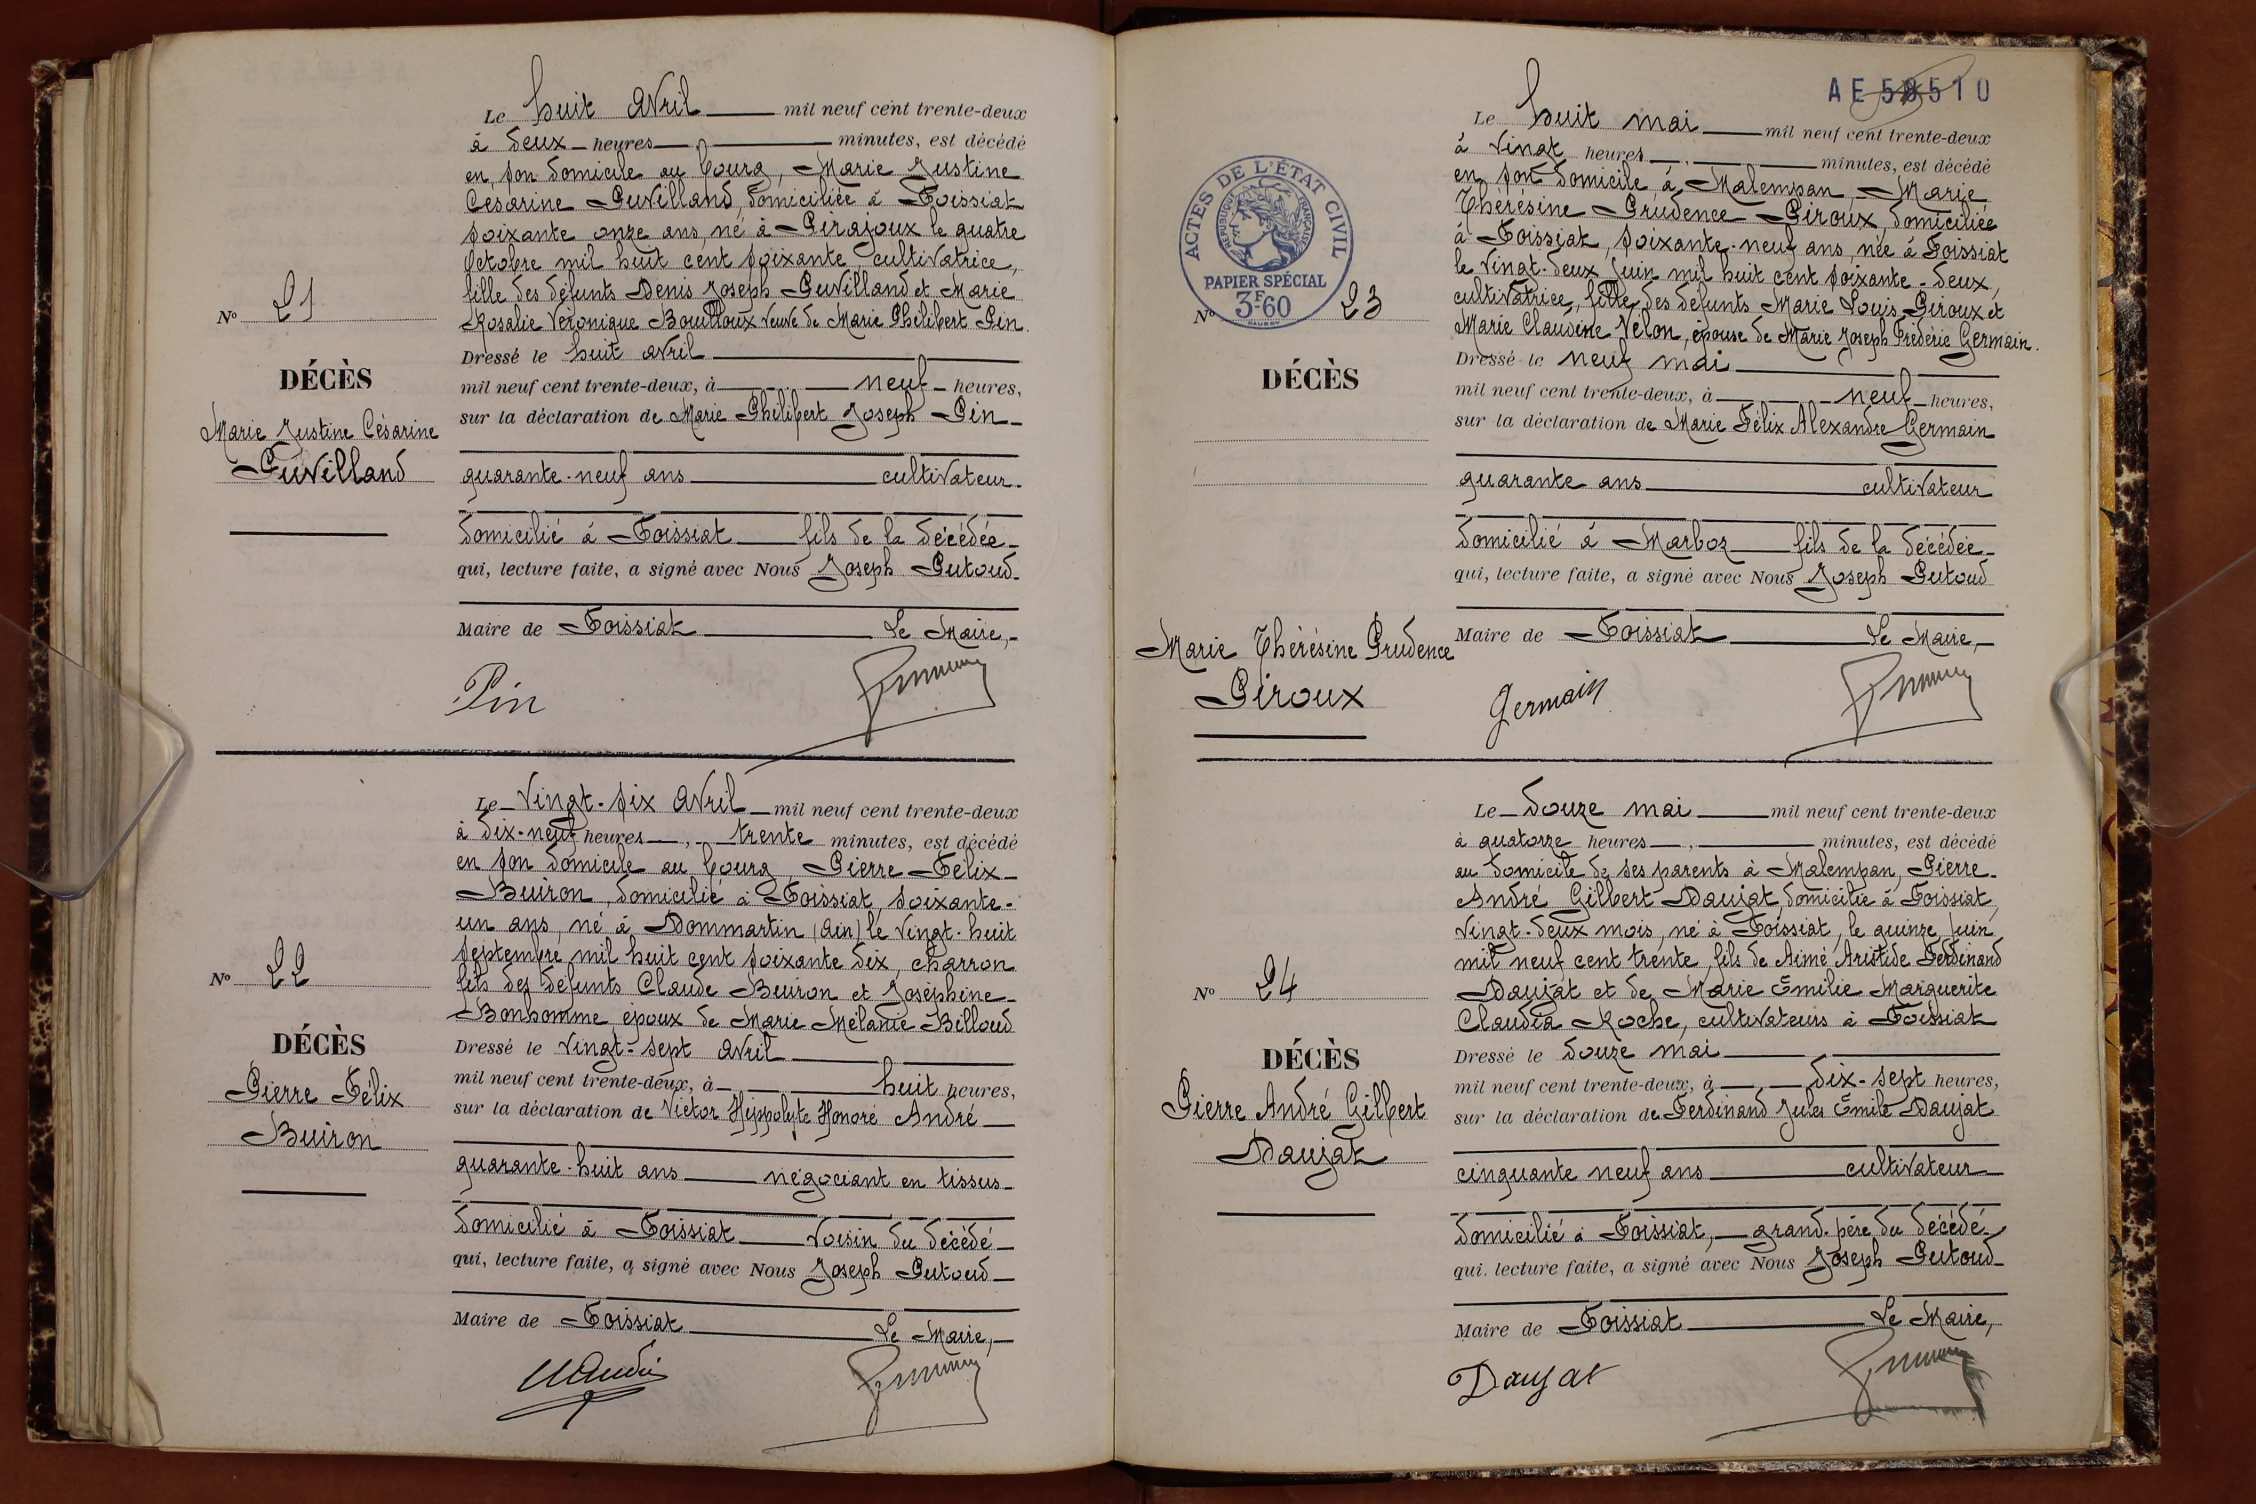 Le huit Avril mil neuf cent trente-deux
à deux heures minutes, est décédé
en son domicile au bourg, Marie Justine
Césarine Puvilland, domiciliée à Foissiat
soixante onze ans, né à Pirajoux le quatre
Octobre mil huit cent soixante, cultivatrice,
fille des défunts Denis Joseph Puvilland et Marie
Rosalie Véronique Bouilloux veuve de Marie Philibert Pin.
Nº 21
Dressé le huit avril
DÉCÈS
mil neuf cent trente-deux, à neuf heures,
sur la déclaration de Marie Philibert Joseph Pin
Marie Justine Césarine
Puvilland
quarante-neuf ans cultivateur.
domicilié à Foissiat fils de la décédée
qui, lecture faite, a signé avec Nous Joseph Putoud
Maire de Foissiat Le Maire,
Pin
Le Vingt-six Avril mil neuf cent trente-deux
à dix-neuf heures, trente minutes, est décédé
en son domicile au bourg, Pierre Félix
Buiron, domicilié à Foissiat, soixante-
un ans, né à Dommartin (Ain) le Vingt-huit
septembre mil huit cent soixante dix, charron
fils des défunts Claude Buiron et Joséphine
Bonhomme, époux de Marie Mélanie Billoud
Nº 22
Dressé le Vingt-sept Avril
DÉCÈS
mil neuf cent trente-deux, à huit heures,
sur la déclaration de Victor Hippolyte Honoré André
Pierre Félix
Buiron
quarante-huit ans négociant en tissus
domicilié à Foissiat voisin du décédé
qui, lecture faite, a signé avec Nous Joseph Putoud
Maire de Foissiat Le Maire,
AE 510
Le huit mai mil neuf cent trente-deux
à Vingt heures, minutes, est décédé
en son domicile, à Malempan, Marie
Thérésine Prudence Piroux, domiciliée
à Foissiat, soixante-neuf ans, née à Foissiat
le Vingt-deux Juin mil huit cent soixante-deux,
cultivatrice, fille des défunts Marie Louis Piroux et
Marie Claudine Vélon, épouse de Marie Joseph Frédéric Germain.
ACTES DE L'ÉTAT CIVIL
RÉPUBLIQUE FRANÇAISE
PAPIER SPÉCIAL
3F60
Nº 23
Dressé le neuf mai
DÉCÈS
mil neuf cent trente-deux, à neuf heures,
sur la déclaration de Marie Félix Alexandre Germain
quarante ans cultivateur
domicilié à Marboz fils de la décédée
qui, lecture faite, a signé avec Nous Joseph Putoud
Maire de Foissiat Le Maire,
Marie Thérésine Prudence
Piroux
Germain
Le Douze mai mil neuf cent trente-deux
à quatorze heures, minutes, est décédé
au domicile de ses parents à Malempan, Pierre
André Gilbert Daujat, domicilié à Foissiat,
Vingt-deux mois, né à Foissiat, le quinze Juin
mil neuf cent trente, fils de Aimé Aristide Ferdinand
Daujat et de Marie Émilie Marguerite
Claudia Roche, cultivateurs à Foissiat
Nº 24
Dressé le Douze mai
DÉCÈS
mil neuf cent trente-deux, à dix-sept heures,
sur la déclaration de Ferdinand Jules Émile Daujat
Pierre André Gilbert
Daujat
cinquante neuf ans cultivateur
domicilié à Foissiat, grand-père du décédé
qui, lecture faite, a signé avec Nous Joseph Putoud
Maire de Foissiat Le Maire,
Daujat